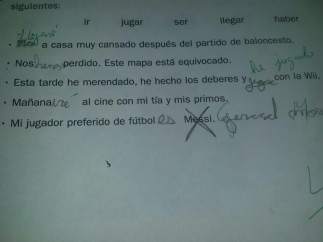 siguientes:
ir jugar ser llegar haber
· Llegaré a casa muy cansado después del partido de baloncesto.
· Nos hemos perdido. Este mapa está equivocado.
he jugado
· Esta tarde he merendado, he hecho los deberes y con la Wii.
· Mañana iré al cine con mi tía y mis primos.
· Mi jugador preferido de fútbol es Messi.